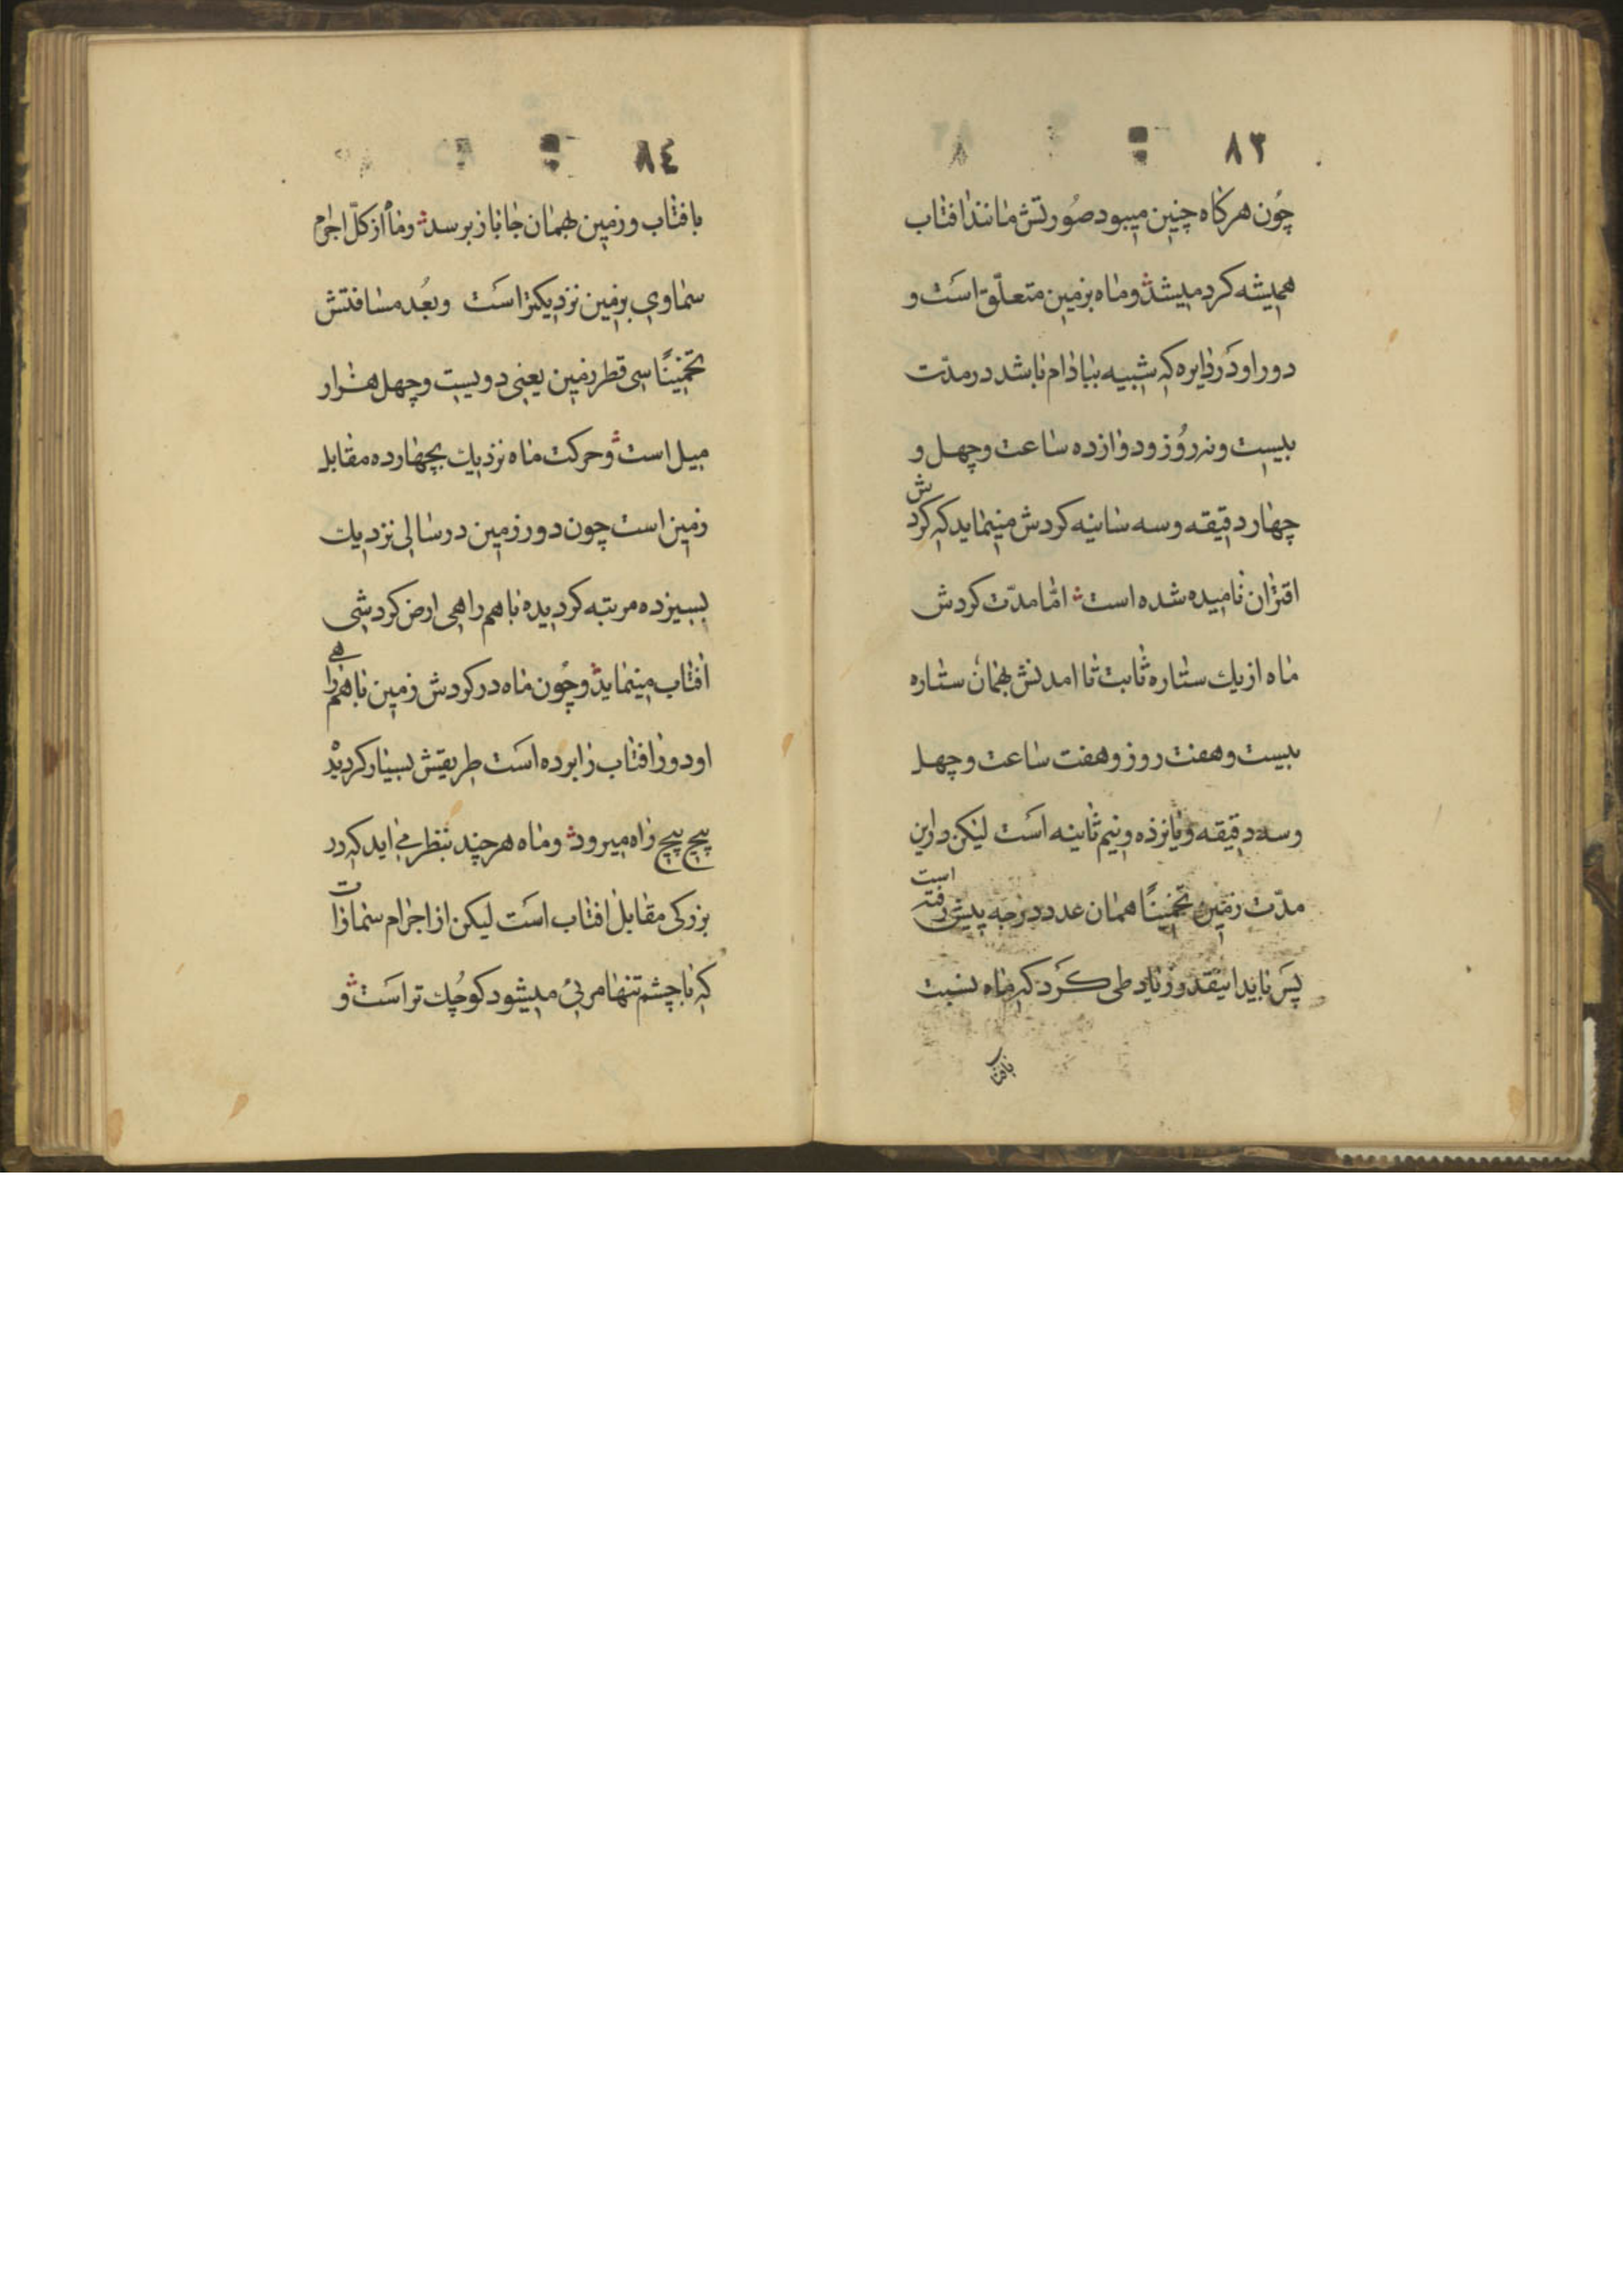 ٨٣
چُون هر کاه چنین میبود صُورتش مانند افتاب
همیشه کرد میشد و ماه بزمین متعلّق است و
دور او در دایره که شبیه ببادام باشد در مدّت
بیست و نه رُوز و دوازده ساعت و چهل و
چهار دقیقه و سه سانیه کردش مینماید که کردش
اقتران نامیده شده است امّا مدّت کردش
ماه از یك ستاره ثابت تا امدنش بهمان ستاره
بیست و هفت روز و هفت ساعت و چهل
و سه دقیقه و پانزده و نیم ثانیه است لیکن در این
مدّت زمین تخمینًا همان عدد درجه پیش رفته است
پس باید اینقدر زیاد طی کرد که ماه نسبت
بافتاب
٨٤
بافتاب و زمین بهمان جا باز برسد و ماه از کلّ اجرام
سماوی بزمین نزدیکتر است و بُعد مسافتش
تخمینًا سی قطر زمین یعنی دویست و چهل هزار
میل است و حرکت ماه نزدیك بچهارده مقابل
زمین است چون دور زمین در سالی نزدیك
بسیزده مرتبه کردیده باهم راهی ارض کردشی
افتاب مینماید و چُون ماه در کردش زمین باهم راهی
او دور افتاب را برده است طریقش بسیار کردید
پیچ پیچ راه میرود و ماه هر چند بنظر می اید که در
بزرکی مقابل افتاب است لیکن از اجرام سماوات
که با چشم تنها مرئی میشود کوچُك تر است و